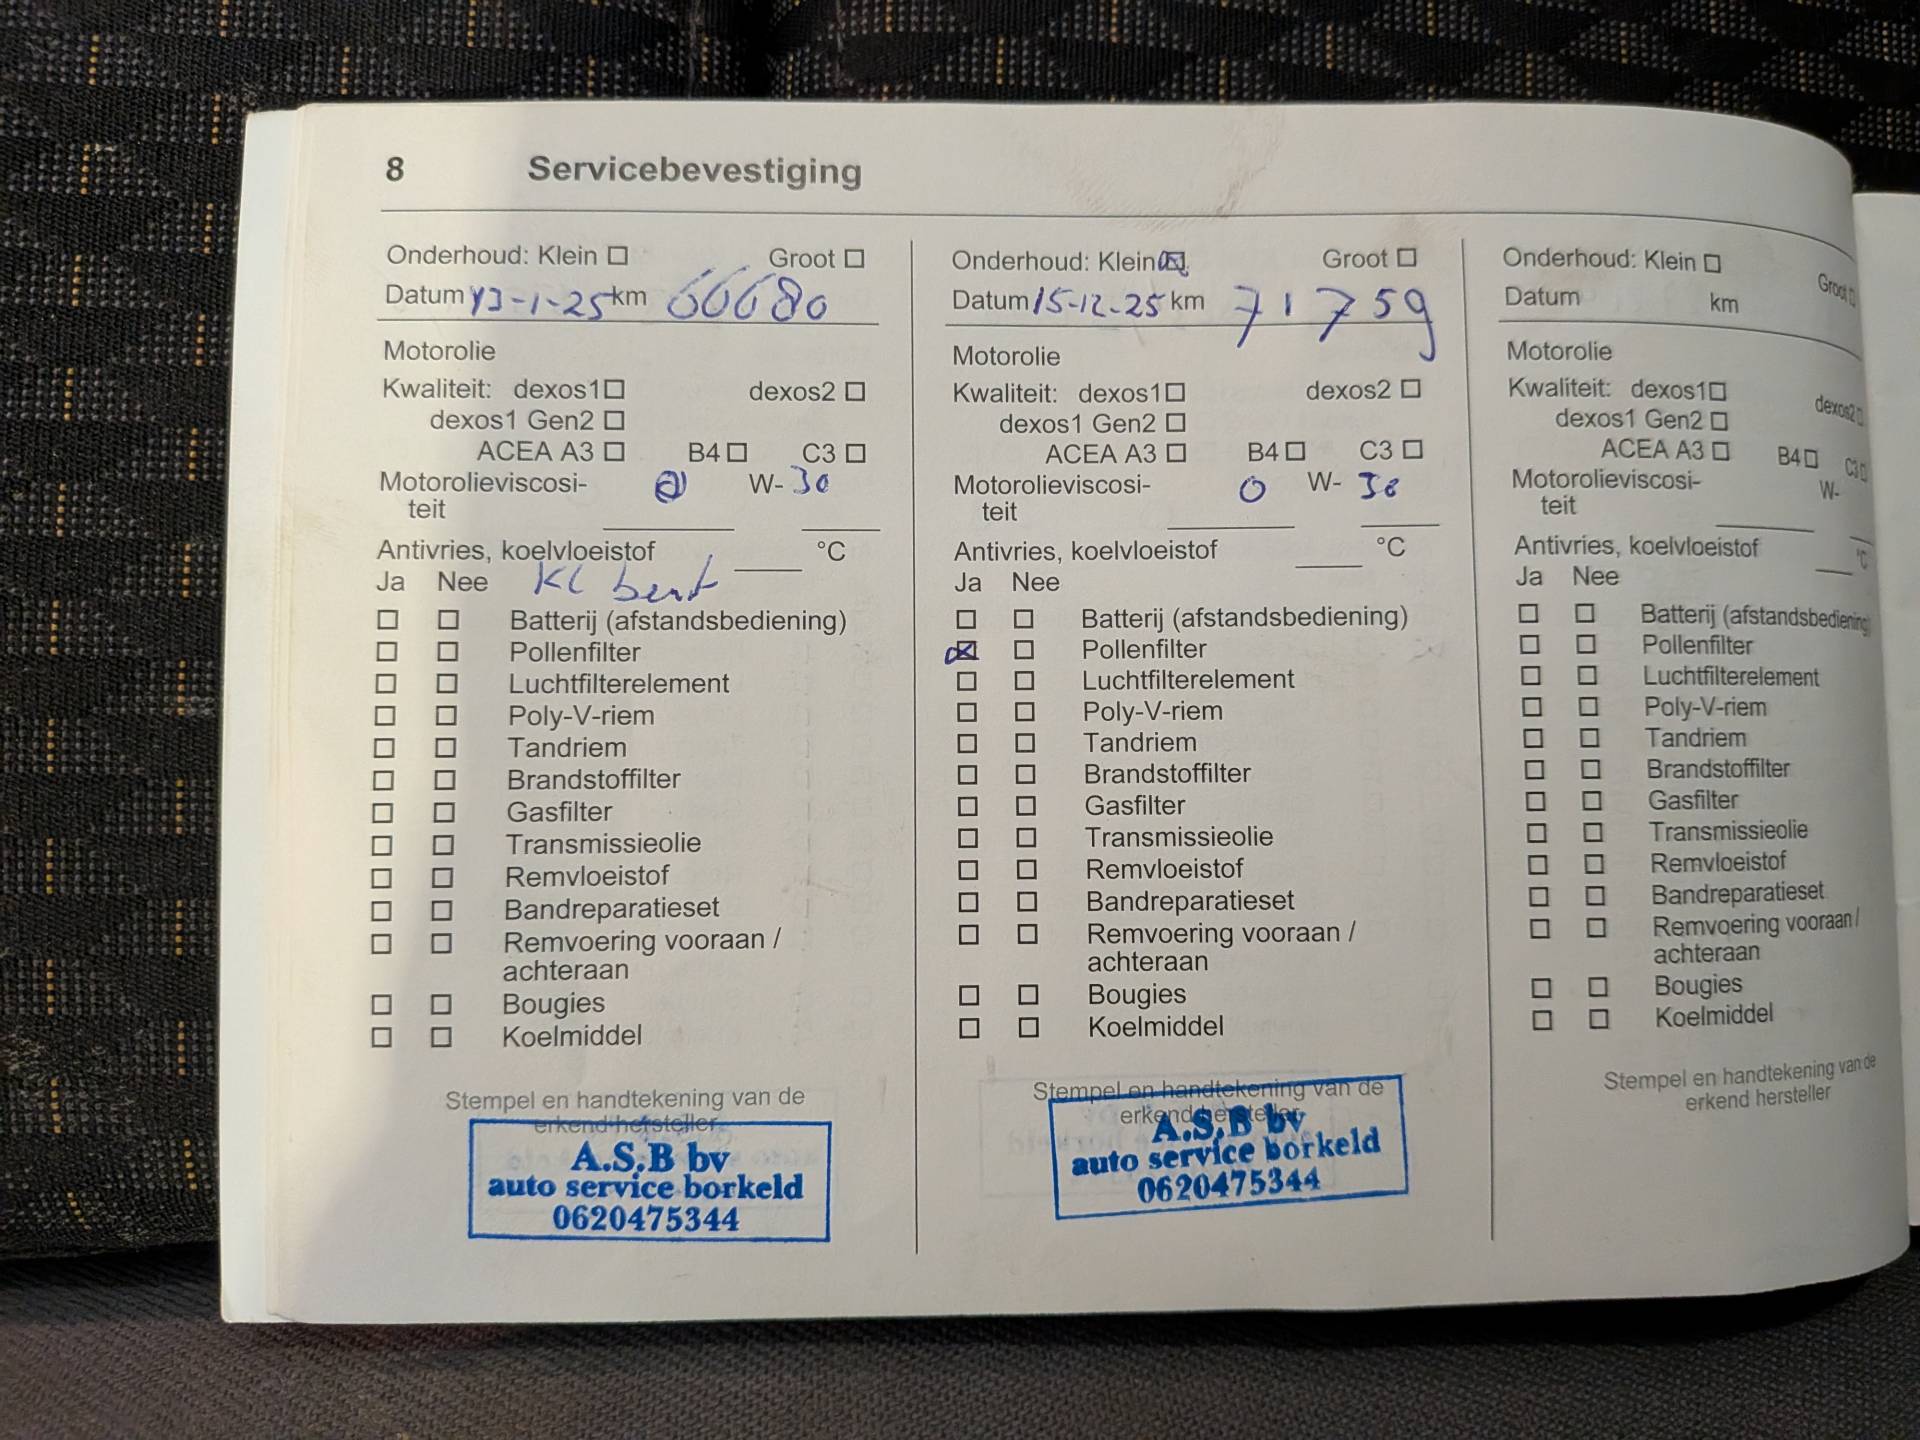 8 Servicebevestiging
Onderhoud: Klein ☐ Groot ☐
Datum 13-1-25 km 66680
Motorolie
Kwaliteit: dexos1 ☐ dexos2 ☐
dexos1 Gen2 ☐
ACEA A3 ☐ B4 ☐ C3 ☐
Motorolieviscosi- 0 W- 30
teit
Antivries, koelvloeistof °C
Ja Nee
☐ ☐ Batterij (afstandsbediening)
☐ ☐ Pollenfilter
☐ ☐ Luchtfilterelement
☐ ☐ Poly-V-riem
☐ ☐ Tandriem
☐ ☐ Brandstoffilter
☐ ☐ Gasfilter
☐ ☐ Transmissieolie
☐ ☐ Remvloeistof
☐ ☐ Bandreparatieset
☐ ☐ Remvoering vooraan /
achteraan
☐ ☐ Bougies
☐ ☐ Koelmiddel
Stempel en handtekening van de
erkend hersteller
A.S.B bv
auto service borkeld
0620475344
Onderhoud: Klein ☒ Groot ☐
Datum 15-12-25 km 71759
Motorolie
Kwaliteit: dexos1 ☐ dexos2 ☐
dexos1 Gen2 ☐
ACEA A3 ☐ B4 ☐ C3 ☐
Motorolieviscosi- 0 W- 30
teit
Antivries, koelvloeistof °C
Ja Nee
☐ ☐ Batterij (afstandsbediening)
☒ ☐ Pollenfilter
☐ ☐ Luchtfilterelement
☐ ☐ Poly-V-riem
☐ ☐ Tandriem
☐ ☐ Brandstoffilter
☐ ☐ Gasfilter
☐ ☐ Transmissieolie
☐ ☐ Remvloeistof
☐ ☐ Bandreparatieset
☐ ☐ Remvoering vooraan /
achteraan
☐ ☐ Bougies
☐ ☐ Koelmiddel
Stempel en handtekening van de
erkend hersteller
A.S.B bv
auto service borkeld
0620475344
Onderhoud: Klein ☐ Groot ☐
Datum km
Motorolie
Kwaliteit: dexos1 ☐ dexos2 ☐
dexos1 Gen2 ☐
ACEA A3 ☐ B4 ☐ C3 ☐
Motorolieviscosi- W-
teit
Antivries, koelvloeistof °C
Ja Nee
☐ ☐ Batterij (afstandsbediening)
☐ ☐ Pollenfilter
☐ ☐ Luchtfilterelement
☐ ☐ Poly-V-riem
☐ ☐ Tandriem
☐ ☐ Brandstoffilter
☐ ☐ Gasfilter
☐ ☐ Transmissieolie
☐ ☐ Remvloeistof
☐ ☐ Bandreparatieset
☐ ☐ Remvoering vooraan /
achteraan
☐ ☐ Bougies
☐ ☐ Koelmiddel
Stempel en handtekening van de
erkend hersteller